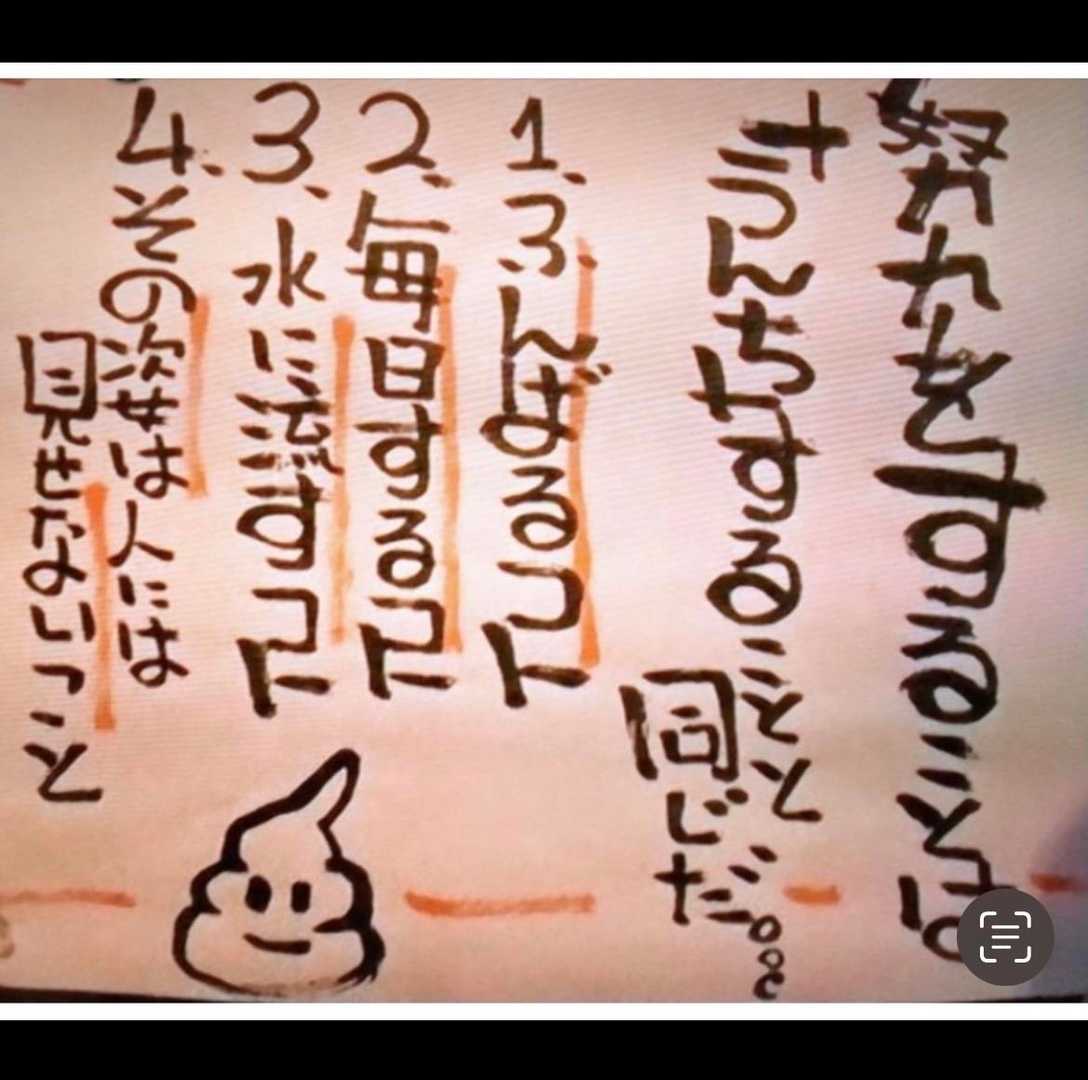 努力をすることは
うんちすることと
同じだ。。。
1.ふんばること
2.毎日すること
3.水に流すこと
4.その姿は人には
見せないこと